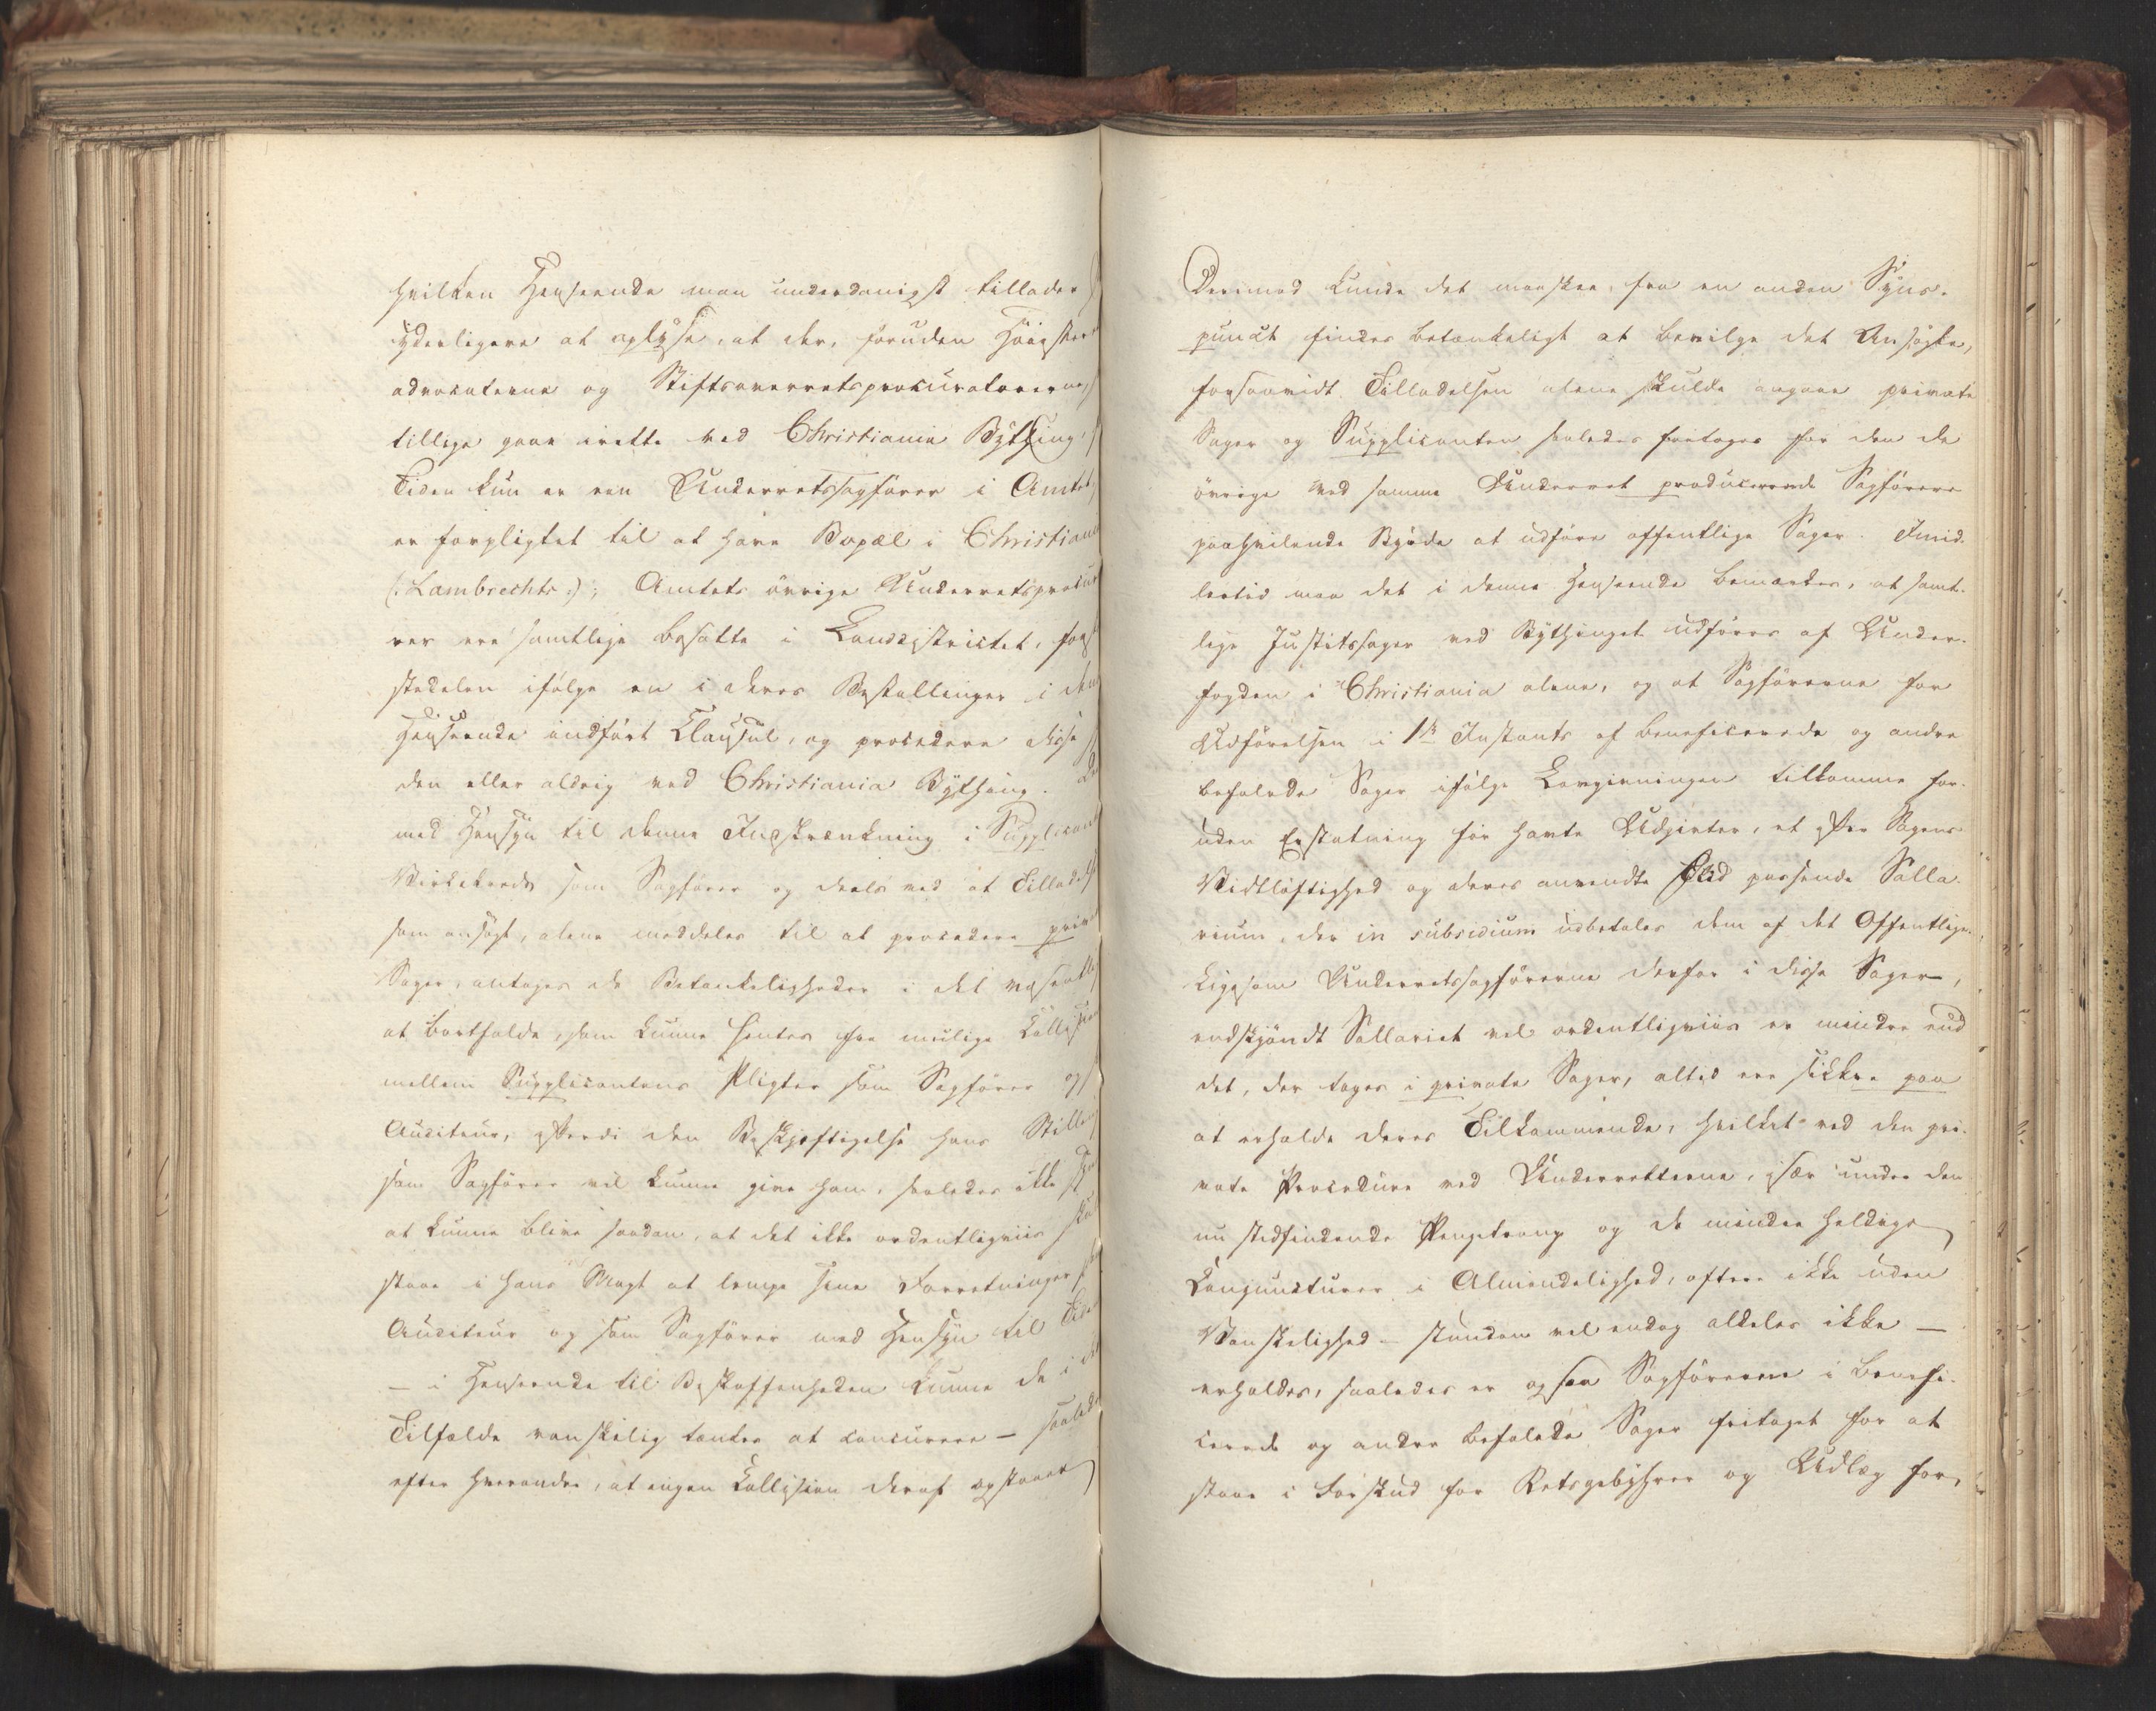 hvilken Henseende man underdanigst tillader
yderligere at oplyse, at der, foruden Höieste
advocaterne og Stiftsoverretsprocuratorerne,
tillige gaae irette ved Christiania Bything,
Tiden kun er een Underretssagförer i Amtet,
er forpligtet til at have Bopæl i Christiania
(: Lambrechts :); Amtets övrige Underretsprocu
rer ere samtlige bosatte i Landdistrictet, for
stedelen ifölge en i deres Bestallinger i den
Henseende indfört Clausul, og procedere disse
den eller aldrig ved Christiania Bything.
med Hensyn til denne Indskrænkning i Supplicant
Virkekreds som Sagförer og deels ved at Tillad
som ansögt, alene meddeles til at procedere priv
Sager, antages de Betænkeligheder i det væsentlig
at bortfalde, som kunne hentes fra mulige Collision
mellem Supplicantens Pligter som Sagförer og
Auditeur, efterdi den Beskjæftigelse hans Stilling
som Sagförer vil kunne give ham, saaledes ikke
at kunne blive saadan, at det ikke ordentligviis
staae i hans Magt at lempe sine Forretninger
Auditeur og som Sagförer med Hensyn til Tiden
— i Henseende til Beskaffenheden kunne de i
Tilfælde vanskelig tænkes at concurrere — saaledes
efter hverandre, at ingen Collision deraf opstaaer
Derimod kunde det maaskee, fra en anden Syns-
punct findes betænkeligt at bevilge det Ansögte,
forsaavidt Tilladelsen alene skulde angaae private
Sager og Supplicanten saaledes fritages for den de
övrige ved samme Underret producerende Sagförere
paahvilende Byrde at udföre offentlige Sager. Imid-
lertid maa det i denne Henseende bemærkes, at samt-
lige Justitssager ved Bythinget udföres af Under-
fogden i Christiania alene, og at Sagförerne for
Udförelsen i 1ste Instants af beneficerede og andre
befalede Sager ifölge Lovgivningen tilkomme for-
uden Erstatning for havte Udgivter, et efter Sagens
Vidtlöftighed og deres anvendte Flid passende Salla-
rium, der in subsidium udbetales dem af det Offentlige.
Ligesom Underretssagförerne derfor i disse Sager,
endskjöndt Sallariet vel ordentligviis er mindre end
det, der tages i private Sager, altid ere sikkre paa
at erholde deres Tilkommende, hvilket ved den pri-
vate Procedure ved Underretterne, især under den
nu stedfindende Pengetrang og de mindre heldige
Conjuncturer i Almindelighed, oftere ikke uden
Vanskelighed — stundom vel endog aldeles ikke —
erholdes, saaledes er ogsaa Sagförerne i benefi-
cerede og andre befalede Sager fritaget for at
staae i Forskud for Retsgebyhrer og Udlæg for,